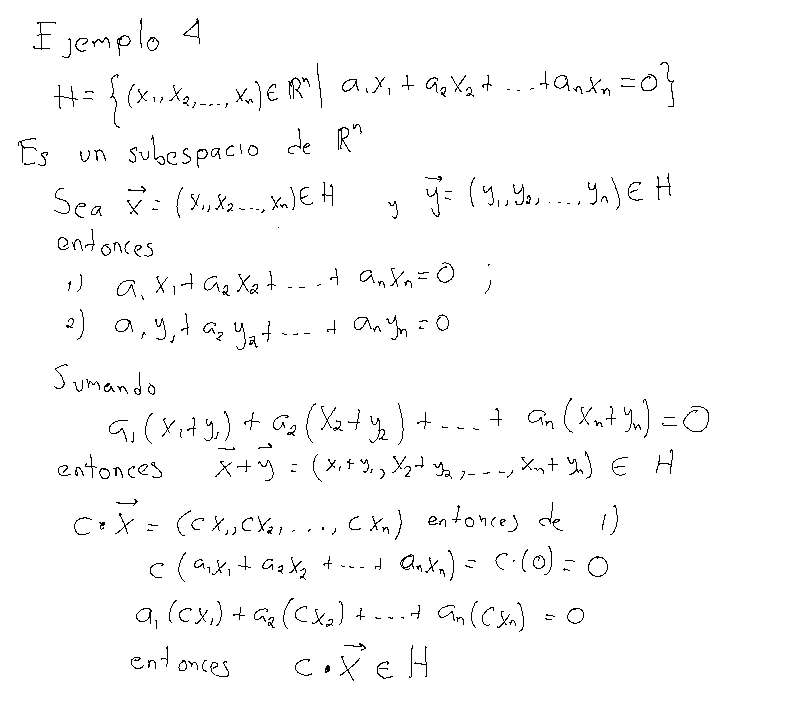 Ejemplo 4
H = {(x₁, x₂, ..., xₙ) ∈ ℝⁿ | a₁x₁ + a₂x₂ + ... + aₙxₙ = 0}
Es un subespacio de ℝⁿ
Sea x⃗ = (x₁, x₂ ..., xₙ) ∈ H y y⃗ = (y₁, y₂, ..., yₙ) ∈ H
entonces
1) a₁x₁ + a₂x₂ + ... + aₙxₙ = 0 ;
2) a₁y₁ + a₂y₂ + ... + aₙyₙ = 0
Sumando
a₁(x₁+y₁) + a₂(x₂+y₂) + ... + aₙ(xₙ+yₙ) = 0
entonces x⃗ + y⃗ = (x₁+y₁, x₂+y₂, ..., xₙ+yₙ) ∈ H
c • x⃗ = (cx₁, cx₂, ..., cxₙ) entonces de 1)
c (a₁x₁ + a₂x₂ + ... + aₙxₙ) = c·(0) = 0
a₁(cx₁) + a₂(cx₂) + ... + aₙ(cxₙ) = 0
entonces c • x⃗ ∈ H